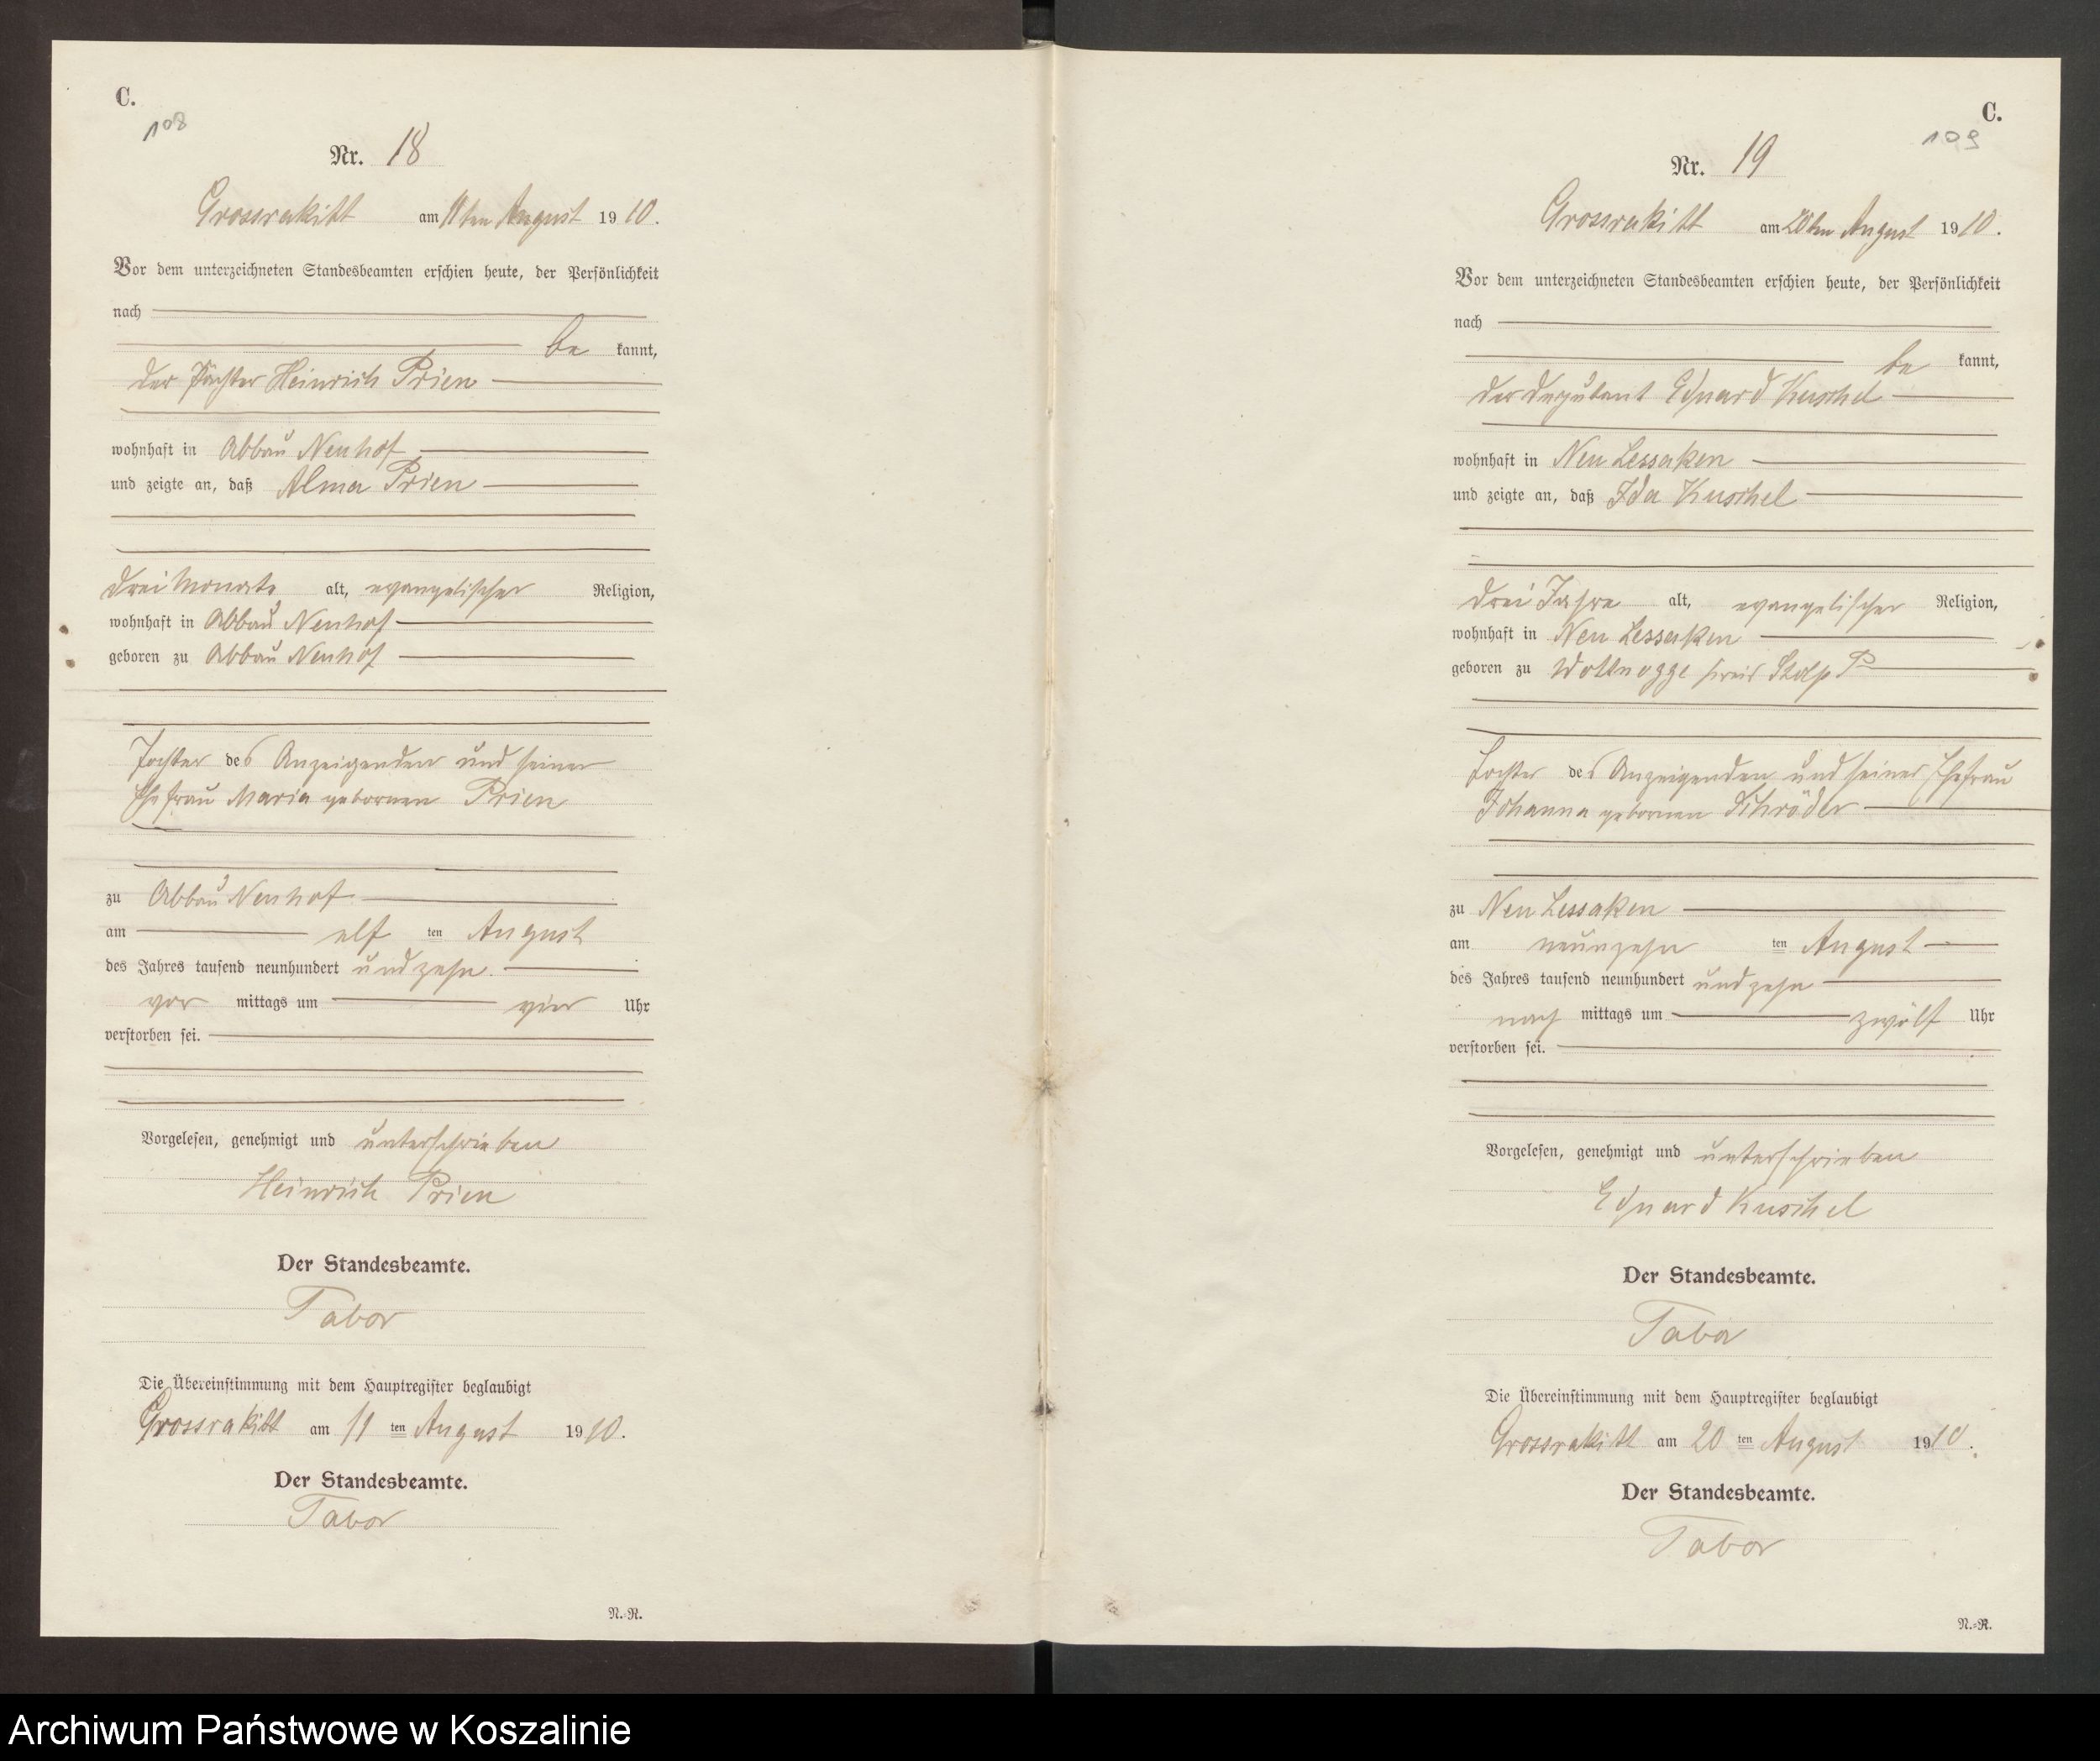 C.
108
Nr. 18
Grossrakitt am 11ten August 1910.
Vor dem unterzeichneten Standesbeamten erschien heute, der Persönlichkeit
nach
be kannt,
der Pächter Heinrich Prien
wohnhaft in Abbau Neuhof
und zeigte an, daß Alma Prien
drei Monate alt, evangelischer Religion,
wohnhaft in Abbau Neuhof
geboren zu Abbau Neuhof
Tochter des Anzeigenden und seiner
Ehefrau Maria gebornen Prien
zu Abbau Neuhof
am elf ten August
des Jahres tausend neunhundert und zehn.
vor mittags um vier Uhr
verstorben sei.
Vorgelesen, genehmigt und unterschrieben
Heinrich Prien
Der Standesbeamte.
Tabor
Die Übereinstimmung mit dem Hauptregister beglaubigt
Grossrakitt am 11 ten August 1910.
Der Standesbeamte.
Tabor
N.-R.
C.
109
Nr. 19
Grossrakitt am 20ten August 1910.
Vor dem unterzeichneten Standesbeamten erschien heute, der Persönlichkeit
nach
be kannt,
der Deputant Eduard Kuschel
wohnhaft in Neu Lessaken
und zeigte an, daß Ida Kuschel
drei Jahre alt, evangelischer Religion,
wohnhaft in Neu Lessaken
geboren zu Wottnogge Kreis Stolp P
Tochter des Anzeigenden und seiner Ehefrau
Johanna gebornen Schröder
zu Neu Lessaken
am neunzehn ten August
des Jahres tausend neunhundert und zehn
nach mittags um zwölf Uhr
verstorben sei.
Vorgelesen, genehmigt und unterschrieben
Eduard Kuschel
Der Standesbeamte.
Tabor
Die Übereinstimmung mit dem Hauptregister beglaubigt
Grossrakitt am 20 ten August 1910.
Der Standesbeamte.
Tabor
N.-R.
Archiwum Państwowe w Koszalinie